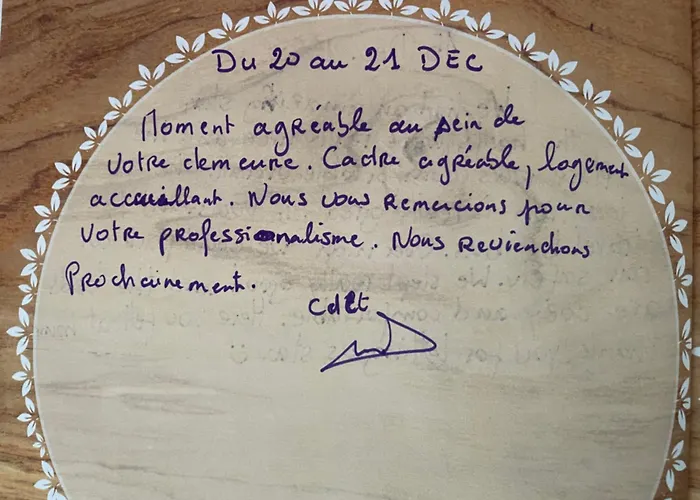 Du 20 au 21 DEC
Moment agréable au sein de
votre demeure. Cadre agréable, logement
accueillant. Nous vous remercions pour
votre professionalisme. Nous reviendrons
Prochainement.
Cdlt